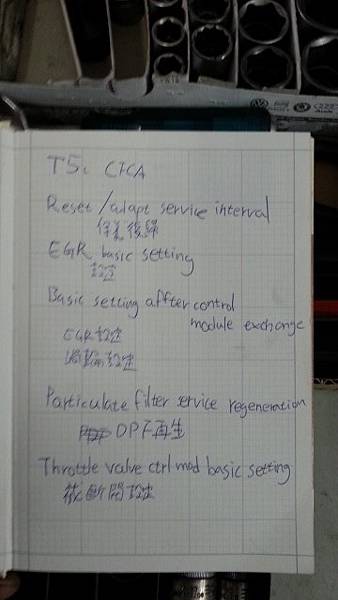 T5. CFCA
Reset /adapt service interval
保養後歸
EGR basic setting
設定
Basic setting affter control
module exchange
EGR設定
渦輪設定
Particulate filter service regeneration
DPF再生
Throttle valve ctrl mod basic setting
設定